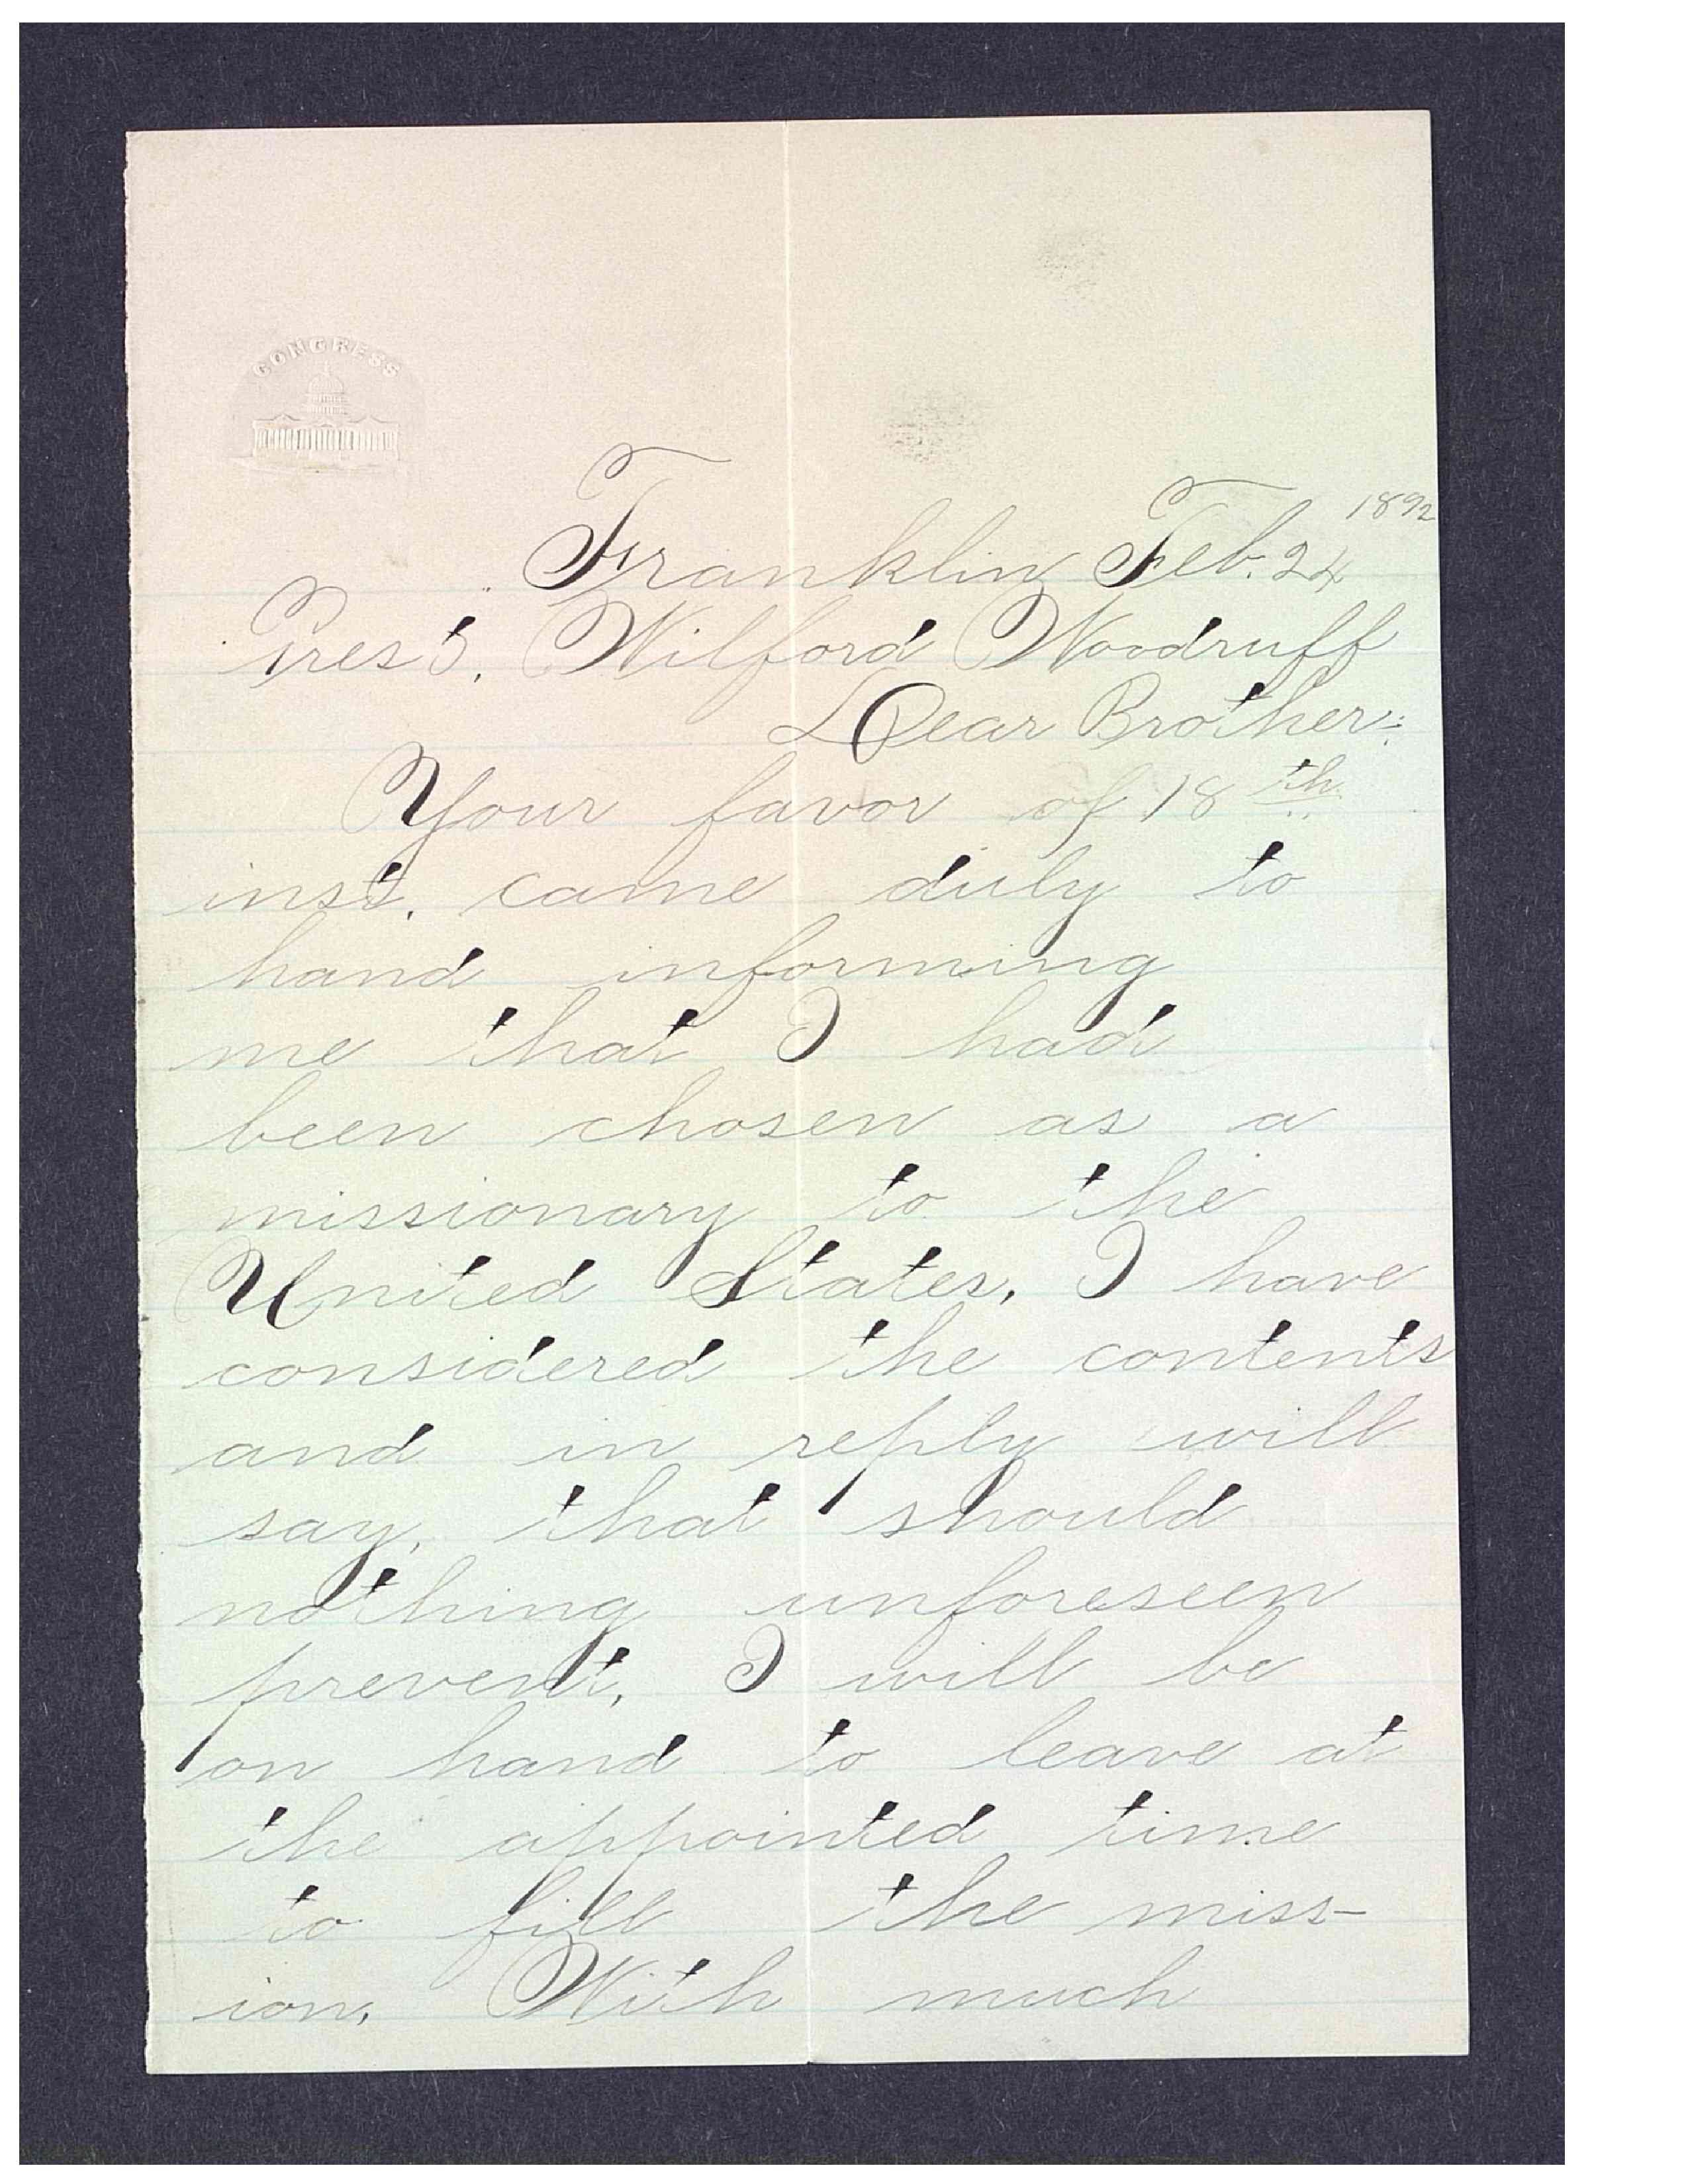 CONGRESS
Franklin Feb. 24 1892
Prest. Wilford Woodruff
Dear Brother:
Your favor of 18th
inst. came duly to
hand informing
me that I had
been chosen as a
missionary to the
United States. I have
considered the contents
and in reply will
say, that should
nothing unforeseen
prevent, I will be
on hand to leave at
the appointed time
to fill the miss-
ion. With much